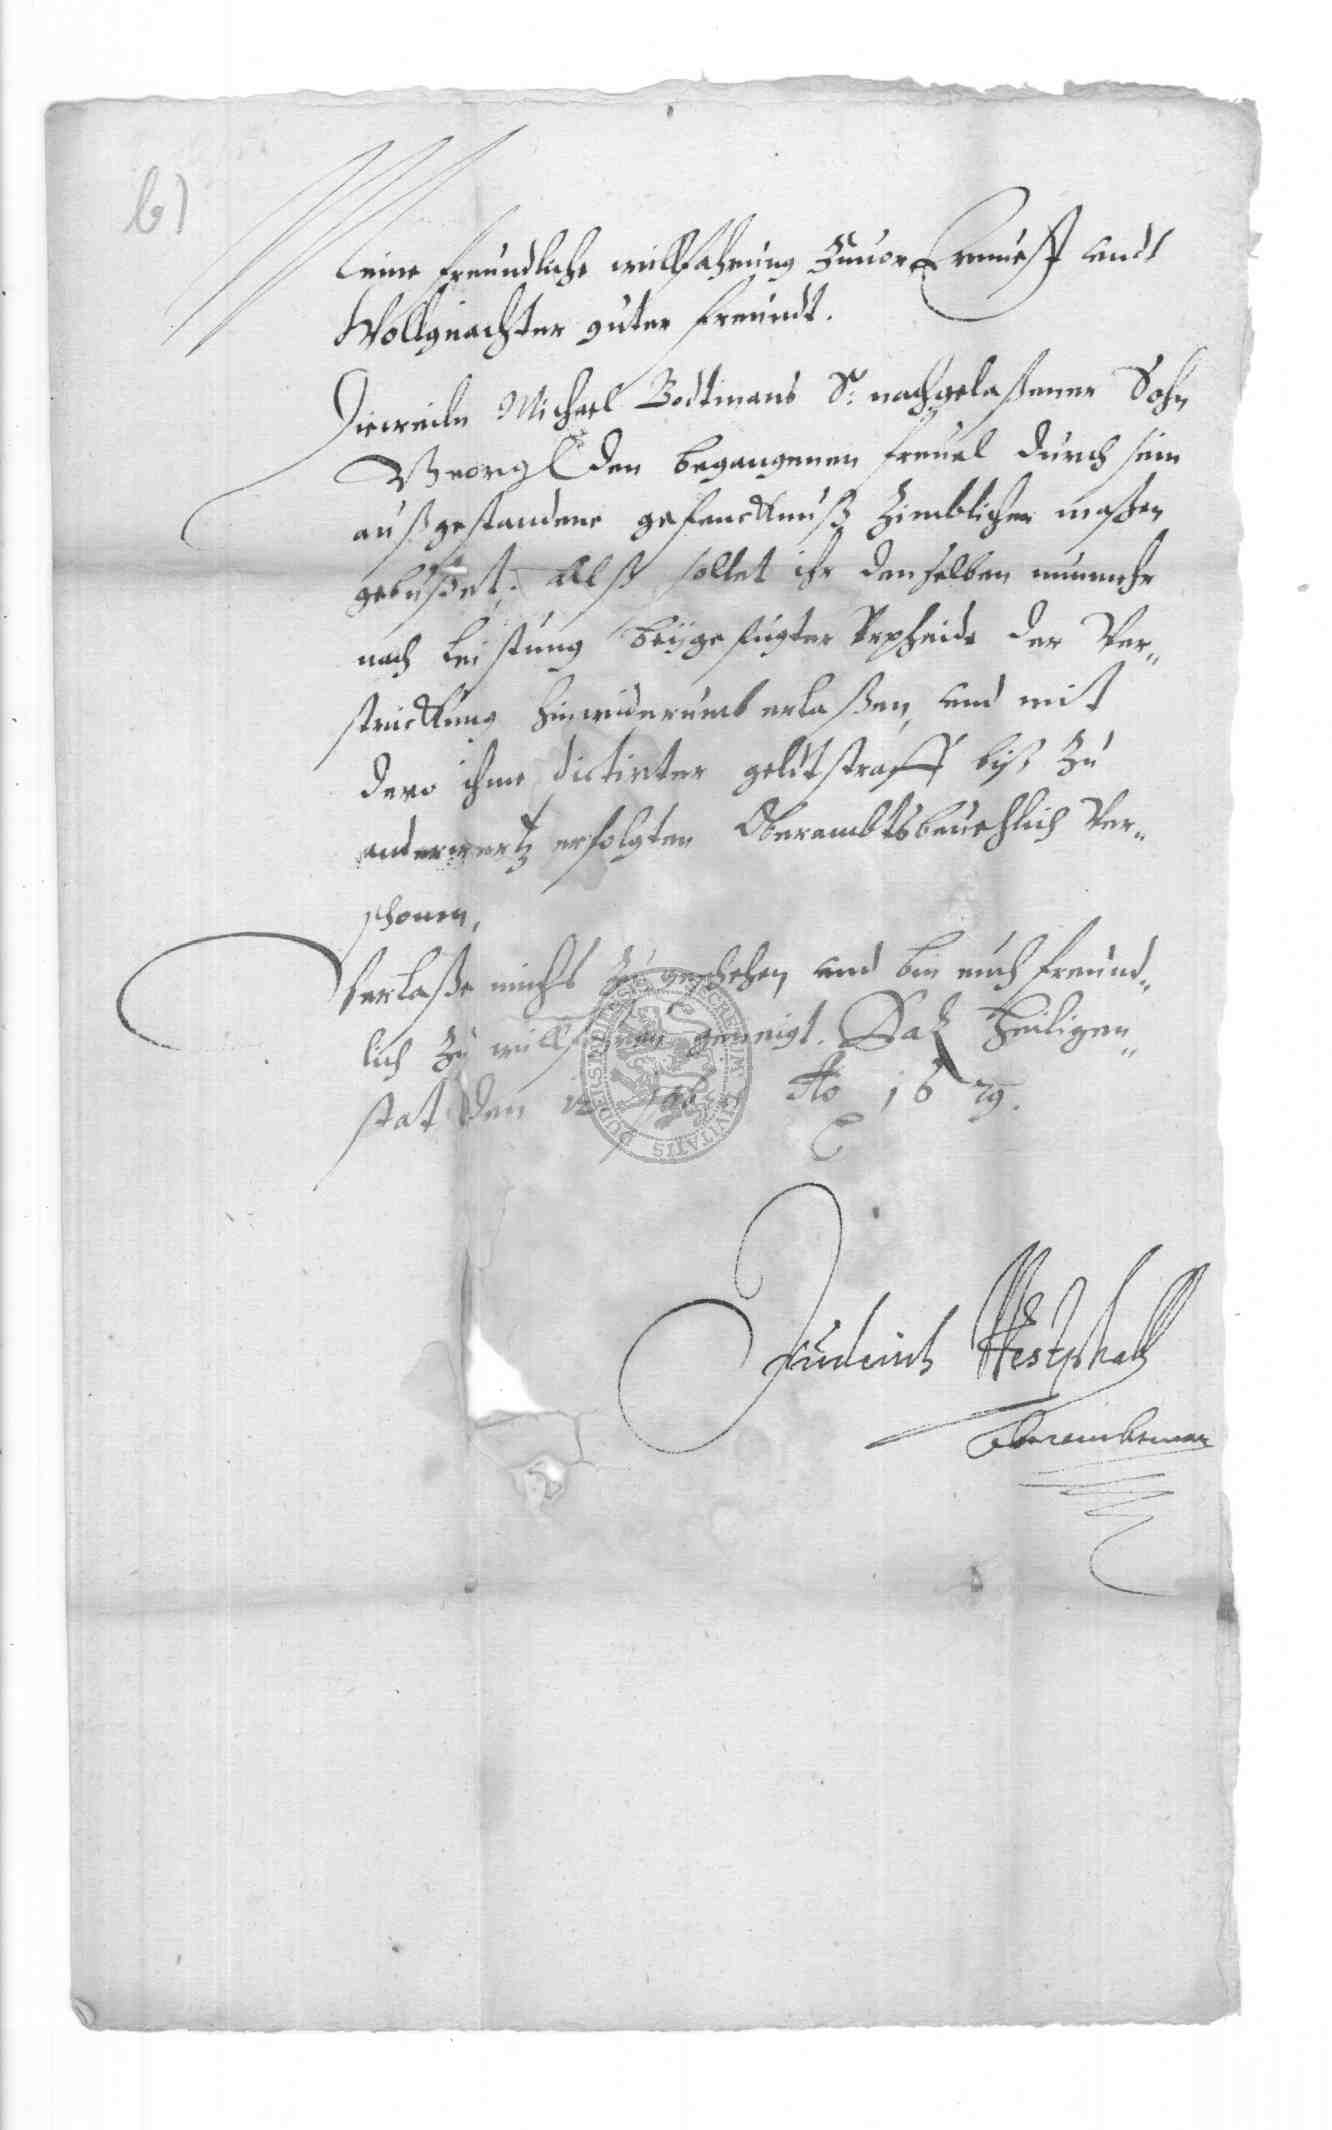 b)
Meine freundliche willfahrung Zuvor Ernuest undt
Wollgeachter guter freundt.
Dieweiln Michael Bodtmans S: nachgelaßener Sohn
Georg den begangenen freuel durch sein
außgestandene gefencknuß Zimblicher maßen
gebüßet; Alß sollet ihr denselben nunmehr
nach leistung beÿgefügter Vrpheide der Ver„
strickung hinwiderumb erlaßen, und mit
dero ihme dictirter geldtstraff biß Zu
anderwertz erfolgten Oberambtsbeuehlich Ver„
schonen,
Verlaße michs Zu geschehen, und bin euch freund„
lich Zu willfahren geneigt. Dat Heiligen„
stat den 12 Ao 1629.
SECRETUM CIVITATIS DUDERSTADIENSIS
Westphall
Oberambtman